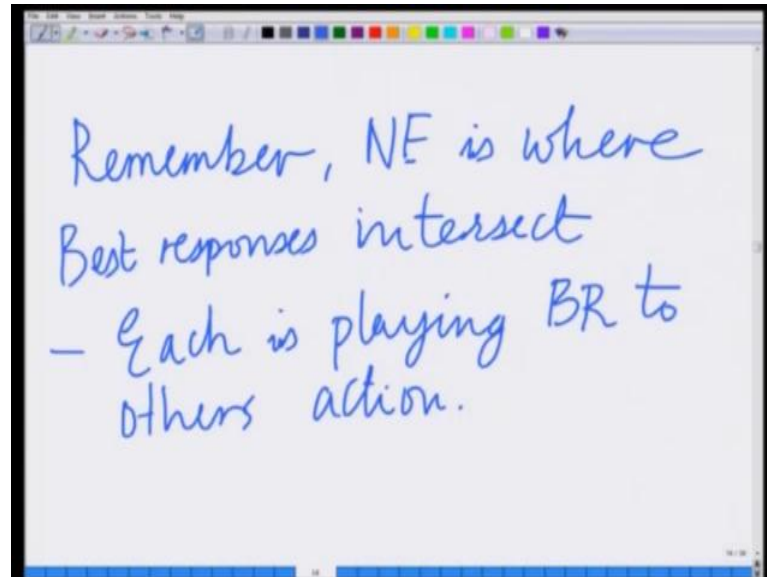 File Edit View Insert Actions Tools Help
Remember, NE is where
Best responses intersect
- Each is playing BR to
others action.